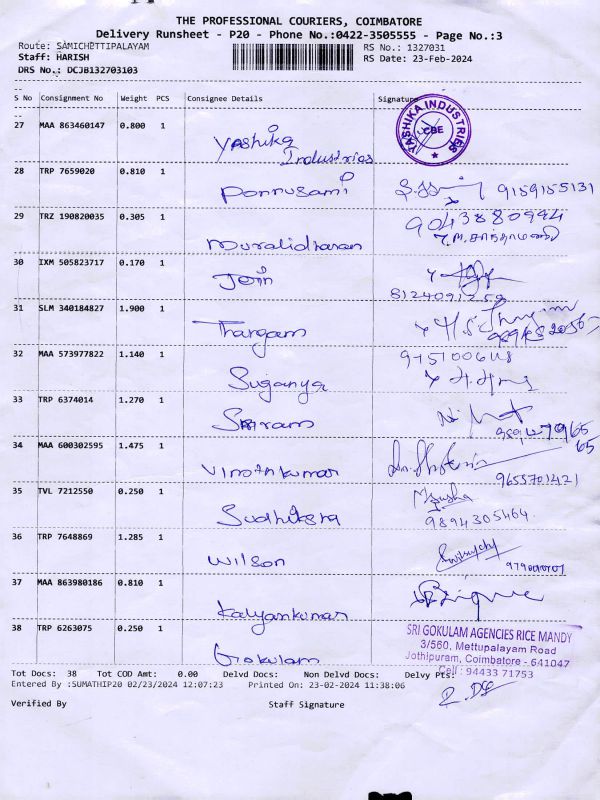 THE PROFESSIONAL COURIERS, COIMBATORE
Delivery Runsheet - P20 - Phone No.:0422-3505555 - Page No.:3
Route: SAMICHETTIPALAYAM
RS No.: 1327031
Staff: HARISH
RS Date: 23-Feb-2024
DRS No.: DCJB132703103
S No Consignment No Weight PCS Consignee Details Signature
27 MAA 863460147 0.800 1
YASHIKA INDUSTRIES
CBE
Yashika
Industries
28 TRP 7659020 0.810 1
Ponnusami 9159155131
29 TRZ 190820035 0.305 1
9043880994
Muralidharan
30 IXM 505823717 0.170 1
John
8124091259
31 SLM 340184827 1.900 1
Thangam
32 MAA 573977822 1.140 1
Suganya
33 TRP 6374014 1.270 1
Sriram
34 MAA 600302595 1.475 1
Vinothkumar
9655701421
35 TVL 7212550 0.250 1
Sudhiksha
9894305464
36 TRP 7648869 1.285 1
Wilson
37 MAA 863980186 0.810 1
Kalyankumar
38 TRP 6263075 0.250 1
Gokulam
SRI GOKULAM AGENCIES RICE MANDY
3/560, Mettupalayam Road
Jothipuram, Coimbatore - 641047
Cell : 94433 71753
Tot Docs: 38 Tot COD Amt: 0.00 Delvd Docs: Non Delvd Docs: Delvy Pts:
Entered By :SUMATHIP20 02/23/2024 12:07:23 Printed On: 23-02-2024 11:38:06
Verified By Staff Signature